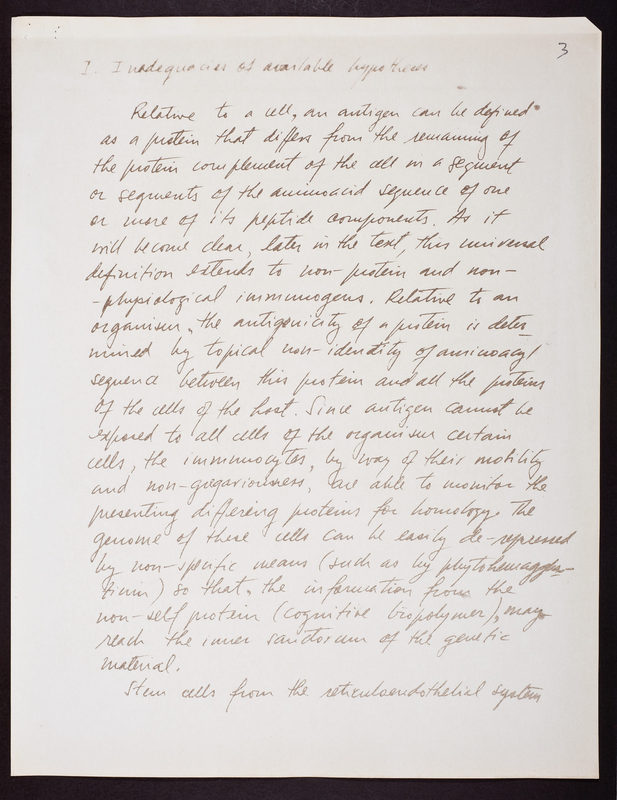 3
I. Inadequacies of available hypotheses
Relative to a cell, an antigen can be defined
as a protein that differs from the remaining of
the protein complement of the cell in a segment
or segments of the aminoacid sequence of one
or more of its peptide components. As it
will become clear, later in the text, this universal
definition extends to non-protein and non-
-physiological immunogens. Relative to an
organism, the antigenicity of a protein is deter-
mined by topical non-identity of aminoacyl
sequence between this protein and all the proteins
of the cells of the host. Since antigen cannot be
exposed to all cells of the organism certain
cells, the immunocytes, by way of their mobility
and non-gregariousness, are able to monitor the
presenting differing proteins for homology. The
genome of these cells can be easily de-repressed
by non-specific means (such as by phytohemagglu-
tinin) so that, the information from the
non-self protein (cognitive biopolymer), may
reach the inner sanctorum of the genetic
material.
Stem cells from the reticuloendothelial system